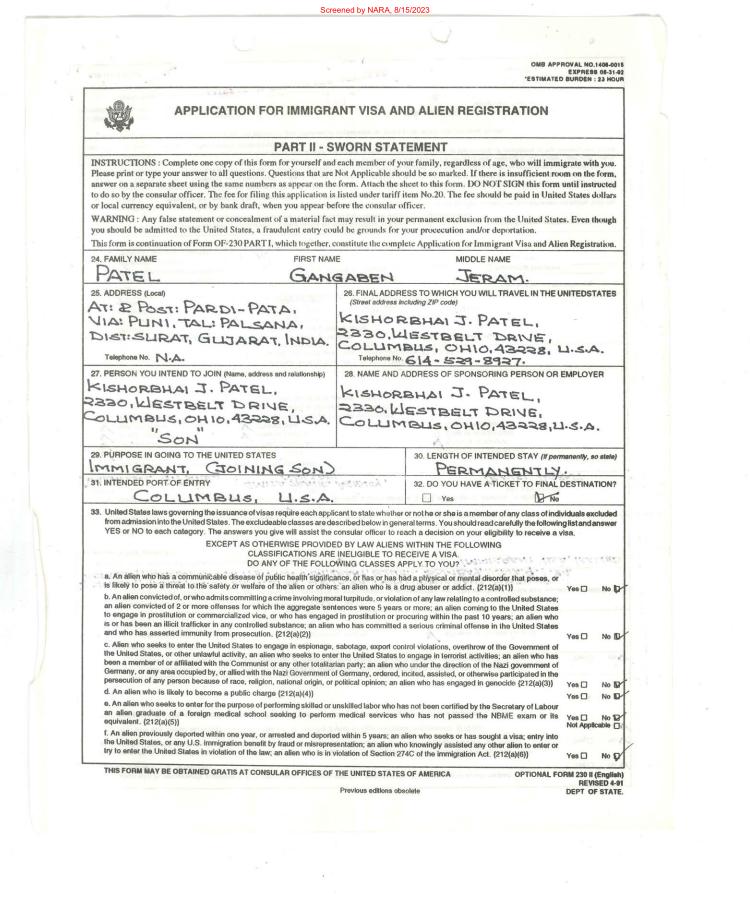 Screened by NARA, 8/15/2023
OMB APPROVAL NO.1405-0015
EXPRESS 05-31-92
*ESTIMATED BURDEN : 23 HOUR
APPLICATION FOR IMMIGRANT VISA AND ALIEN REGISTRATION
PART II - SWORN STATEMENT
INSTRUCTIONS : Complete one copy of this form for yourself and each member of your family, regardless of age, who will immigrate with you.
Please print or type your answer to all questions. Questions that are Not Applicable should be so marked. If there is insufficient room on the form,
answer on a separate sheet using the same numbers as appear on the form. Attach the sheet to this form. DO NOT SIGN this form until instructed
to do so by the consular officer. The fee for filing this application is listed under tariff item No.20. The fee should be paid in United States dollars
or local currency equivalent, or by bank draft, when you appear before the consular officer.
WARNING : Any false statement or concealment of a material fact may result in your permanent exclusion from the United States. Even though
you should be admitted to the United States, a fraudulent entry could be grounds for your procecution and/or deportation.
This form is continuation of Form OF-230 PART I, which together, constitute the complete Application for Immigrant Visa and Alien Registration.
24. FAMILY NAME FIRST NAME MIDDLE NAME
PATEL GANGABEN JERAM.
25. ADDRESS (Local)
AT: & POST: PARDI-PATA,
VIA: PUNI, TAL: PALSANA,
DIST: SURAT, GUJARAT, INDIA.
Telephone No. N.A.
26. FINAL ADDRESS TO WHICH YOU WILL TRAVEL IN THE UNITEDSTATES
(Street address including ZIP code)
KISHORBHAI J. PATEL,
2330, WESTBELT DRIVE,
COLUMBUS, OHIO, 43228, U.S.A.
Telephone No. 614-529-8927.
27. PERSON YOU INTEND TO JOIN (Name, address and relationship)
KISHORBHAI J. PATEL,
2330, WESTBELT DRIVE,
COLUMBUS, OHIO, 43228, U.S.A.
"SON"
28. NAME AND ADDRESS OF SPONSORING PERSON OR EMPLOYER
KISHORBHAI J. PATEL,
2330, WESTBELT DRIVE,
COLUMBUS, OHIO, 43228, U.S.A.
29. PURPOSE IN GOING TO THE UNITED STATES
IMMIGRANT, (JOINING SON)
30. LENGTH OF INTENDED STAY (If permanently, so state)
PERMANENTLY.
31. INTENDED PORT OF ENTRY
COLUMBUS, U.S.A.
32. DO YOU HAVE A TICKET TO FINAL DESTINATION?
Yes No
33. United States laws governing the issuance of visas require each applicant to state whether or not he or she is a member of any class of individuals excluded
from admission into the United States. The excludeable classes are described below in general terms. You should read carefully the following list and answer
YES or NO to each category. The answers you give will assist the consular officer to reach a decision on your eligibility to receive a visa.
EXCEPT AS OTHERWISE PROVIDED BY LAW ALIENS WITHIN THE FOLLOWING
CLASSIFICATIONS ARE INELIGIBLE TO RECEIVE A VISA.
DO ANY OF THE FOLLOWING CLASSES APPLY TO YOU?
a. An alien who has a communicable disease of public health significance, or has or has had a physical or mental disorder that poses, or
is likely to pose a threat to the safety or welfare of the alien or others: an alien who is a drug abuser or addict. (212(a)(1)) Yes No
b. An alien convicted of, or who admits committing a crime involving moral turpitude, or violation of any law relating to a controlled substance;
an alien convicted of 2 or more offenses for which the aggregate sentences were 5 years or more; an alien coming to the United States
to engage in prostitution or commercialized vice, or who has engaged in prostitution or procuring within the past 10 years; an alien who
is or has been an illicit trafficker in any controlled substance; an alien who has committed a serious criminal offense in the United States
and who has asserted immunity from prosecution. (212(a)(2)) Yes No
c. Alien who seeks to enter the United States to engage in espionage, sabotage, export control violations, overthrow of the Government of
the United States, or other unlawful activity, an alien who seeks to enter the United States to engage in terrorist activities; an alien who has
been a member of or affiliated with the Communist or any other totalitarian party; an alien who under the direction of the Nazi government of
Germany, or any area occupied by, or allied with the Nazi Government of Germany, ordered, incited, assisted, or otherwise participated in the
persecution of any person because of race, religion, national origin, or political opinion; an alien who has engaged in genocide (212(a)(3)) Yes No
d. An alien who is likely to become a public charge (212(a)(4)) Yes No
e. An alien who seeks to enter for the purpose of performing skilled or unskilled labor who has not been certified by the Secretary of Labour
an alien graduate of a foreign medical school seeking to perform medical services who has not passed the NBME exam or its Yes No
equivalent. (212(a)(5)) Not Applicable
f. An alien previously deported within one year, or arrested and deported within 5 years; an alien who seeks or has sought a visa; entry into
the United States, or any U.S. immigration benefit by fraud or misrepresentation; an alien who knowingly assisted any other alien to enter or
try to enter the United States in violation of the law; an alien who is in violation of Section 274C of the immigration Act. (212(a)(6)) Yes No
THIS FORM MAY BE OBTAINED GRATIS AT CONSULAR OFFICES OF THE UNITED STATES OF AMERICA
OPTIONAL FORM 230 II (English)
REVISED 4-91
DEPT OF STATE.
Previous editions obsolete